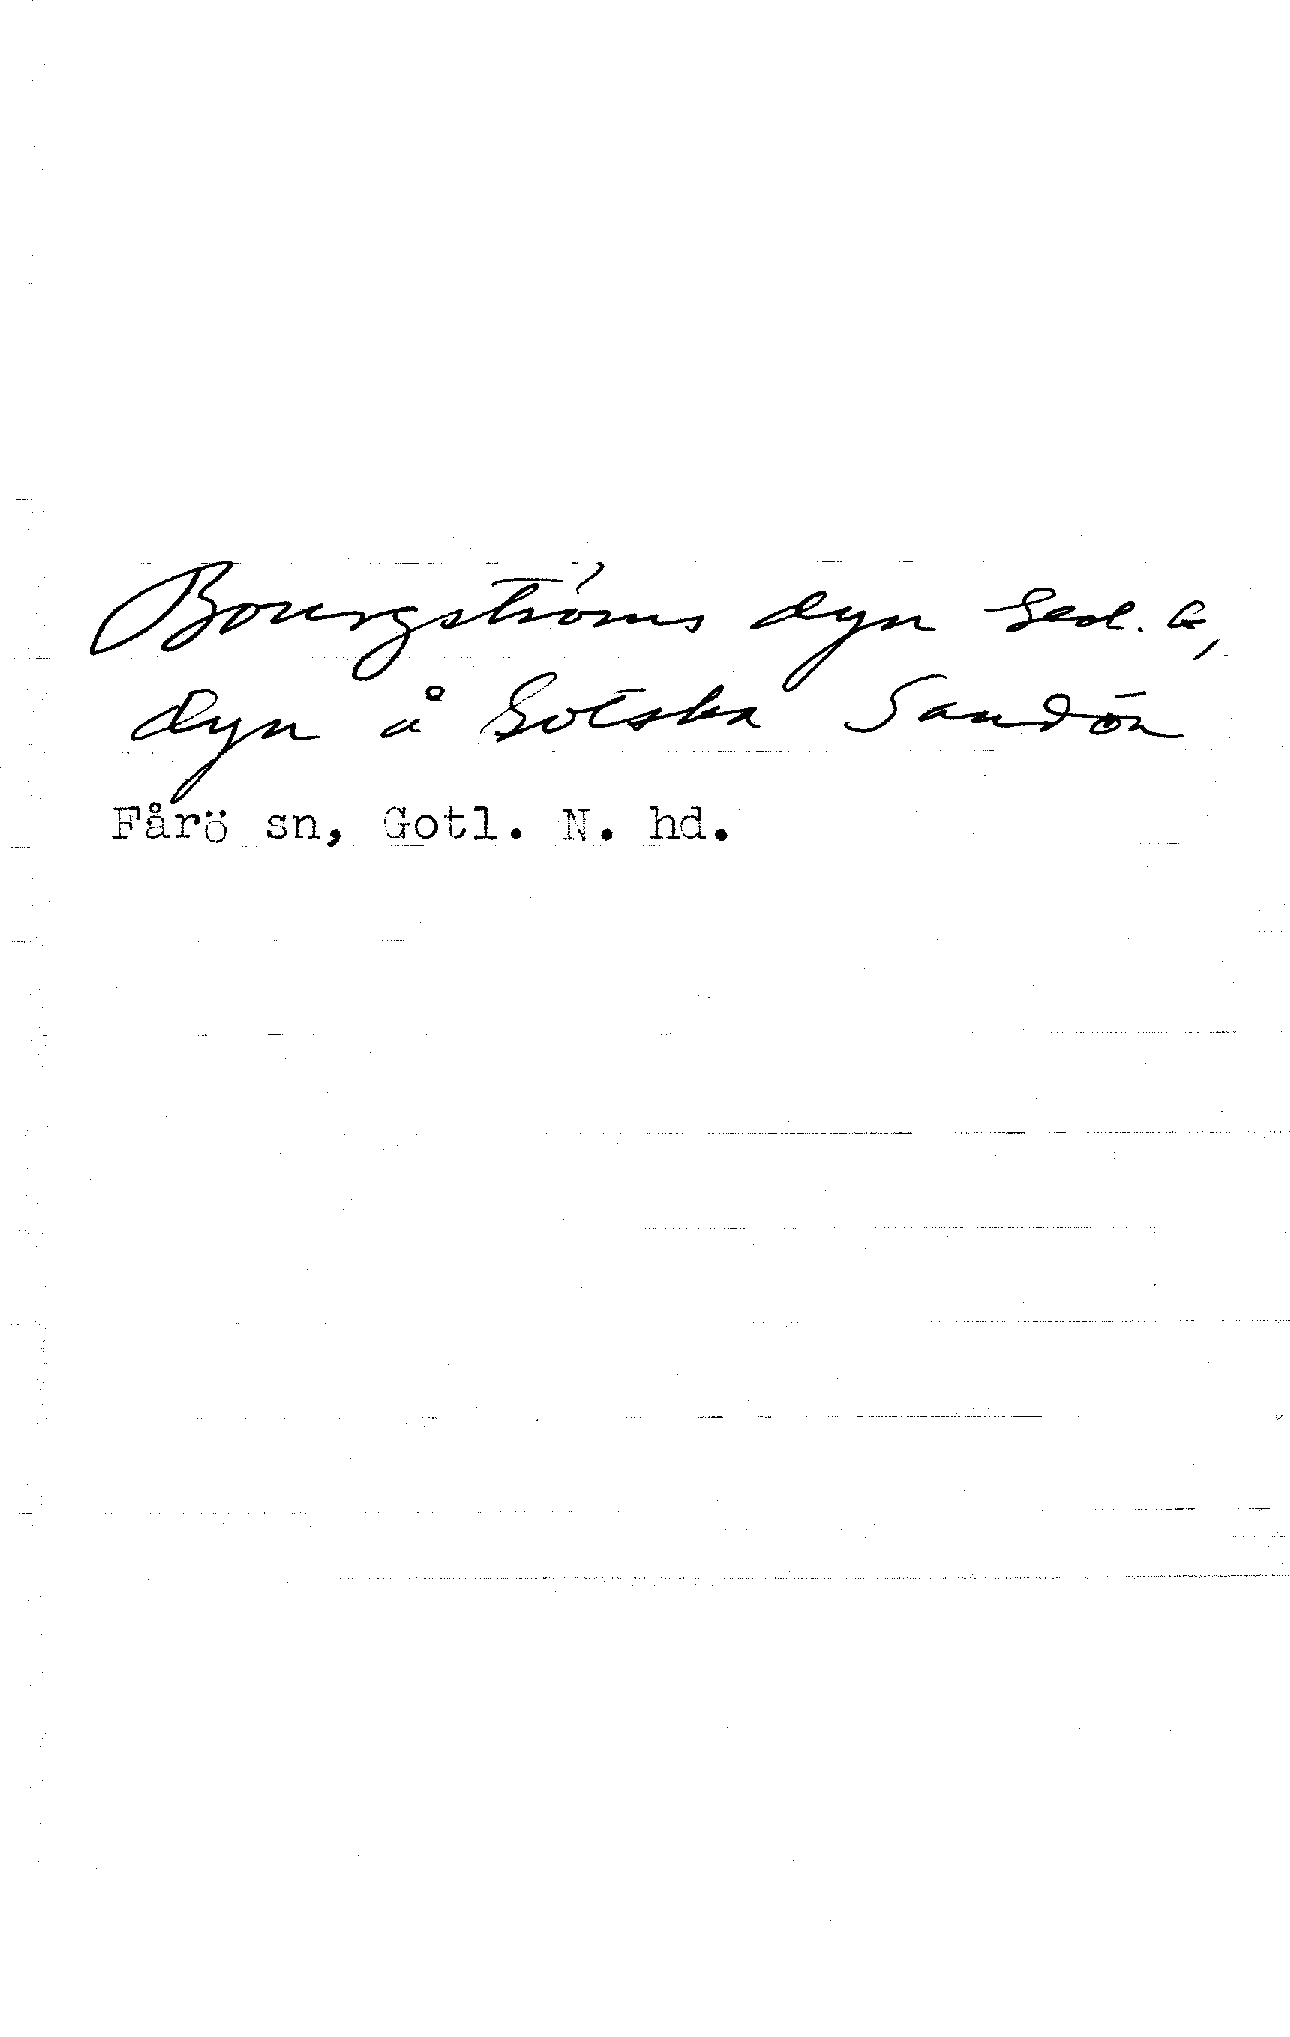 Bourgströms dyn Ged. G,
dyn å Gotska Sandön
Fårö sn, Gotl. N. hd.